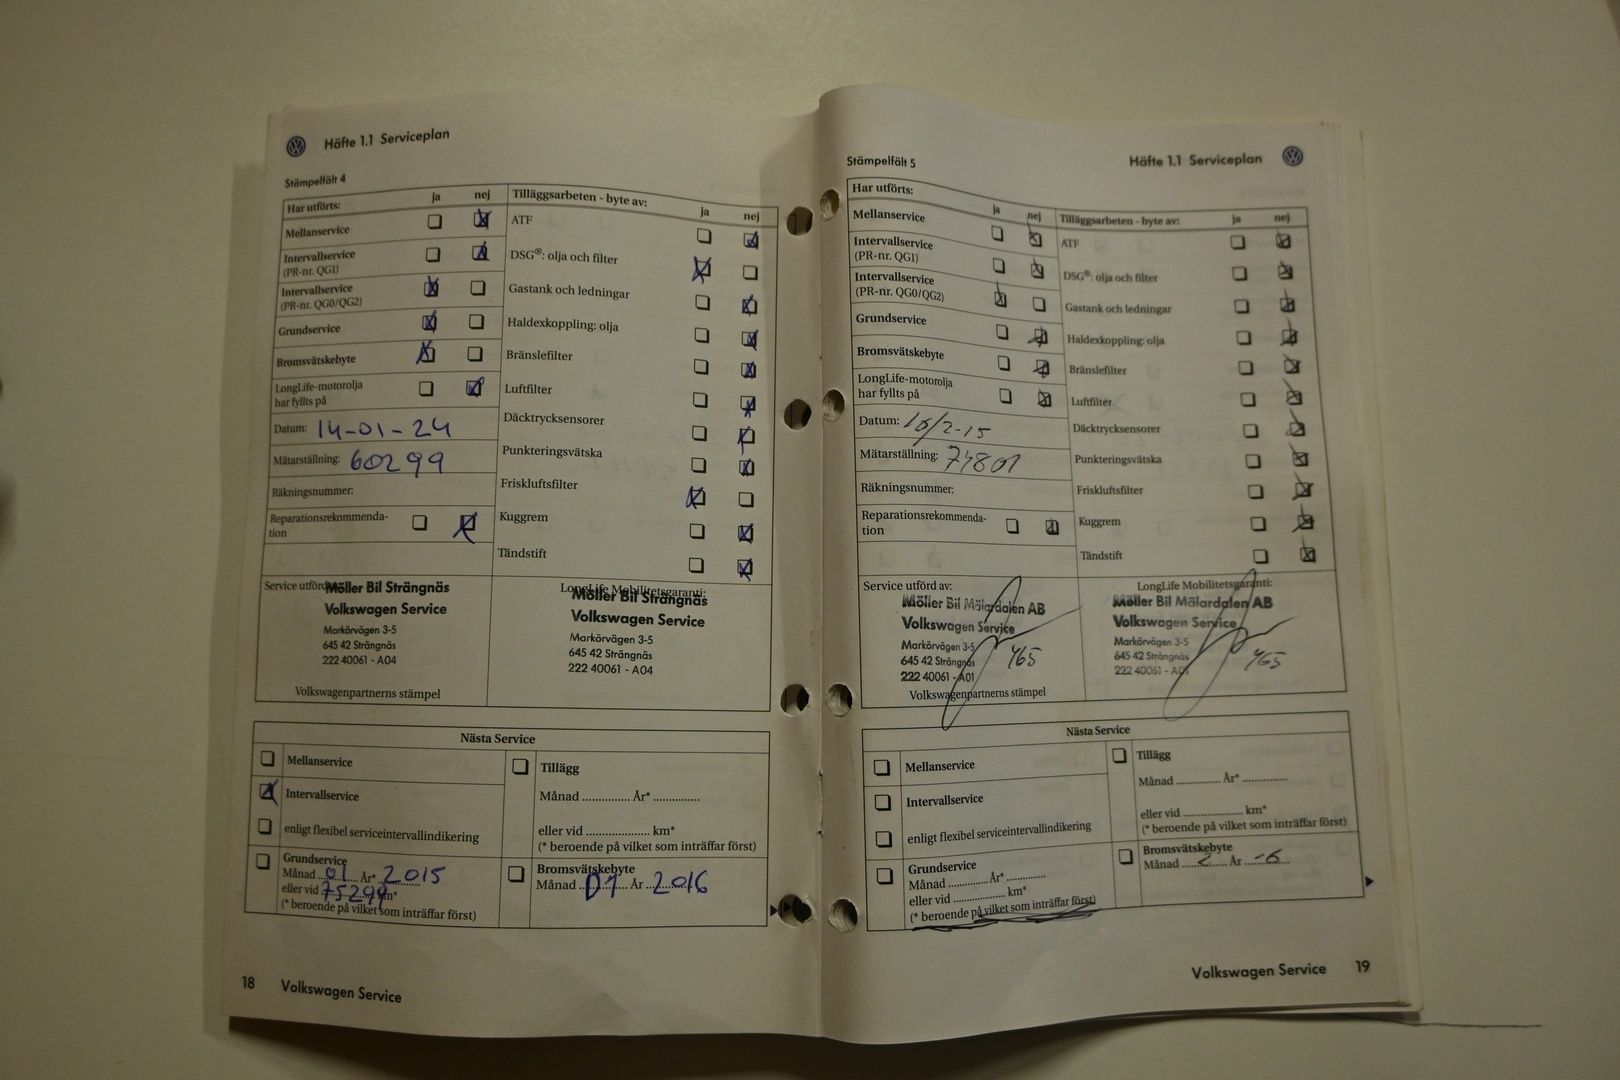 Häfte 1.1 Serviceplan
Stämpelfält 4
Har utförts: ja nej
Mellanservice
Intervallservice
(PR-nr. QG1)
Intervallservice
(PR-nr. QG0/QG2)
Grundservice
Bromsvätskebyte
LongLife-motorolja
har fyllts på
Datum: 14-01-24
Mätarställning: 60299
Räkningsnummer:
Reparationsrekommenda-
tion
Tilläggsarbeten - byte av: ja nej
ATF
DSG®: olja och filter
Gastank och ledningar
Haldexkoppling: olja
Bränslefilter
Luftfilter
Däcktrycksensorer
Punkteringsvätska
Friskluftsfilter
Kuggrem
Tändstift
Service utförd
Möller Bil Strängnäs
Volkswagen Service
Markörvägen 3-5
645 42 Strängnäs
222 40061 - A04
Volkswagenpartnerns stämpel
LongLife Mobilitetsgaranti:
Möller Bil Strängnäs
Volkswagen Service
Markörvägen 3-5
645 42 Strängnäs
222 40061 - A04
Nästa Service
Mellanservice
Intervallservice
enligt flexibel serviceintervallindikering
Grundservice
Månad 01 År* 2015
eller vid 75299 km*
(* beroende på vilket som inträffar först)
Tillägg
Månad ............... År* ...............
eller vid .................... km*
(* beroende på vilket som inträffar först)
Bromsvätskebyte
Månad 01 År 2016
18 Volkswagen Service
Häfte 1.1 Serviceplan
Stämpelfält 5
Har utförts: ja nej
Mellanservice
Intervallservice
(PR-nr. QG1)
Intervallservice
(PR-nr. QG0/QG2)
Grundservice
Bromsvätskebyte
LongLife-motorolja
har fyllts på
Datum: 16/2-15
Mätarställning: 74801
Räkningsnummer:
Reparationsrekommenda-
tion
Tilläggsarbeten - byte av: ja nej
ATF
DSG®: olja och filter
Gastank och ledningar
Haldexkoppling: olja
Bränslefilter
Luftfilter
Däcktrycksensorer
Punkteringsvätska
Friskluftsfilter
Kuggrem
Tändstift
Service utförd av:
Möller Bil Mälardalen AB
Volkswagen Service
Markörvägen 3-5
645 42 Strängnäs
222 40061 - A01
465
Volkswagenpartnerns stämpel
LongLife Mobilitetsgaranti:
Möller Bil Mälardalen AB
Volkswagen Service
Markörvägen 3-5
645 42 Strängnäs
222 40061 - A01
465
Nästa Service
Mellanservice
Intervallservice
enligt flexibel serviceintervallindikering
Grundservice
Månad ............ År* ............
eller vid ................ km*
(* beroende på vilket som inträffar först)
Tillägg
Månad ............. År* .............
eller vid ................. km*
(* beroende på vilket som inträffar först)
Bromsvätskebyte
Månad 2 År -6
Volkswagen Service 19